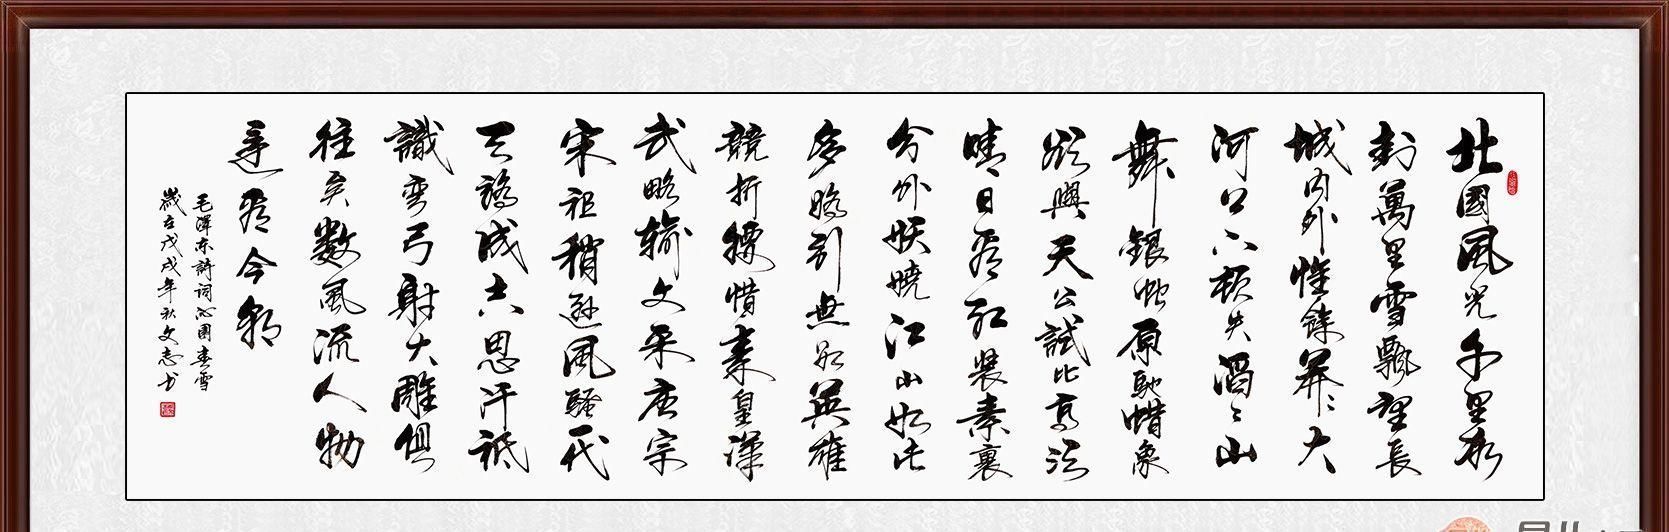 北國風光千里冰
封萬里雪飄望長
城内外惟餘莽〻大
河上下頓失滔〻山
舞銀蛇原馳蜡象
欲與天公試比高須
晴日看紅裝素裹
分外妖嬈江山如此
多嬌引無數英雄
競折腰惜秦皇漢
武略输文采唐宗
宋祖稍遜風騷一代
天驕成吉思汗祗
識彎弓射大雕俱
往矣數風流人物
還看今朝
毛澤东詩词沁園春雪
歲在戊戌年秋文志书